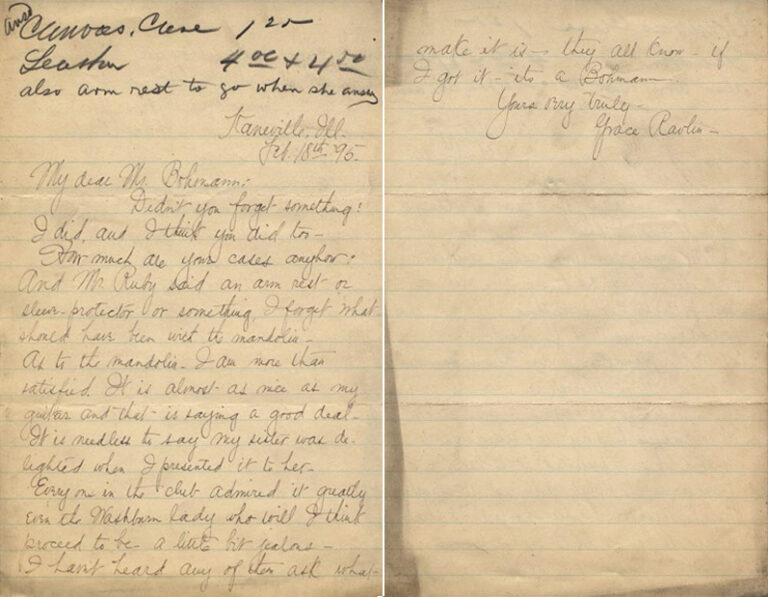 ansd
Canvas. Case 1 25
Leather 4 00 & 4 50
also arm rest to go when she answ
Kaneville, Ill.
Feb. 18th '95.
My dear Mr. Bohmann:
Didn't you forget something?
I did, and I think you did too-
How much are your cases anyhow?
And Mr. Ruby said an arm rest or
sleeve-protector or something, I forget what-
should have been with the mandolin-
As to the mandolin- I am more than
satisfied. It is almost as nice as my
guitar and that- is saying a good deal-
It is needless to say my sister was de-
lighted when I presented it to her-
Everyone in the club admired it greatly
even the Washburn lady who will I think
proceed to be a little bit jealous-
I havn't heard any of them ask what-
make it is- they all know- if
I got it- its a Bohmann-
Yours very truly-
Grace Ravlin-